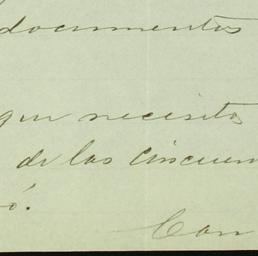 documentos
que necesito
de las cincuen
ó.
Con